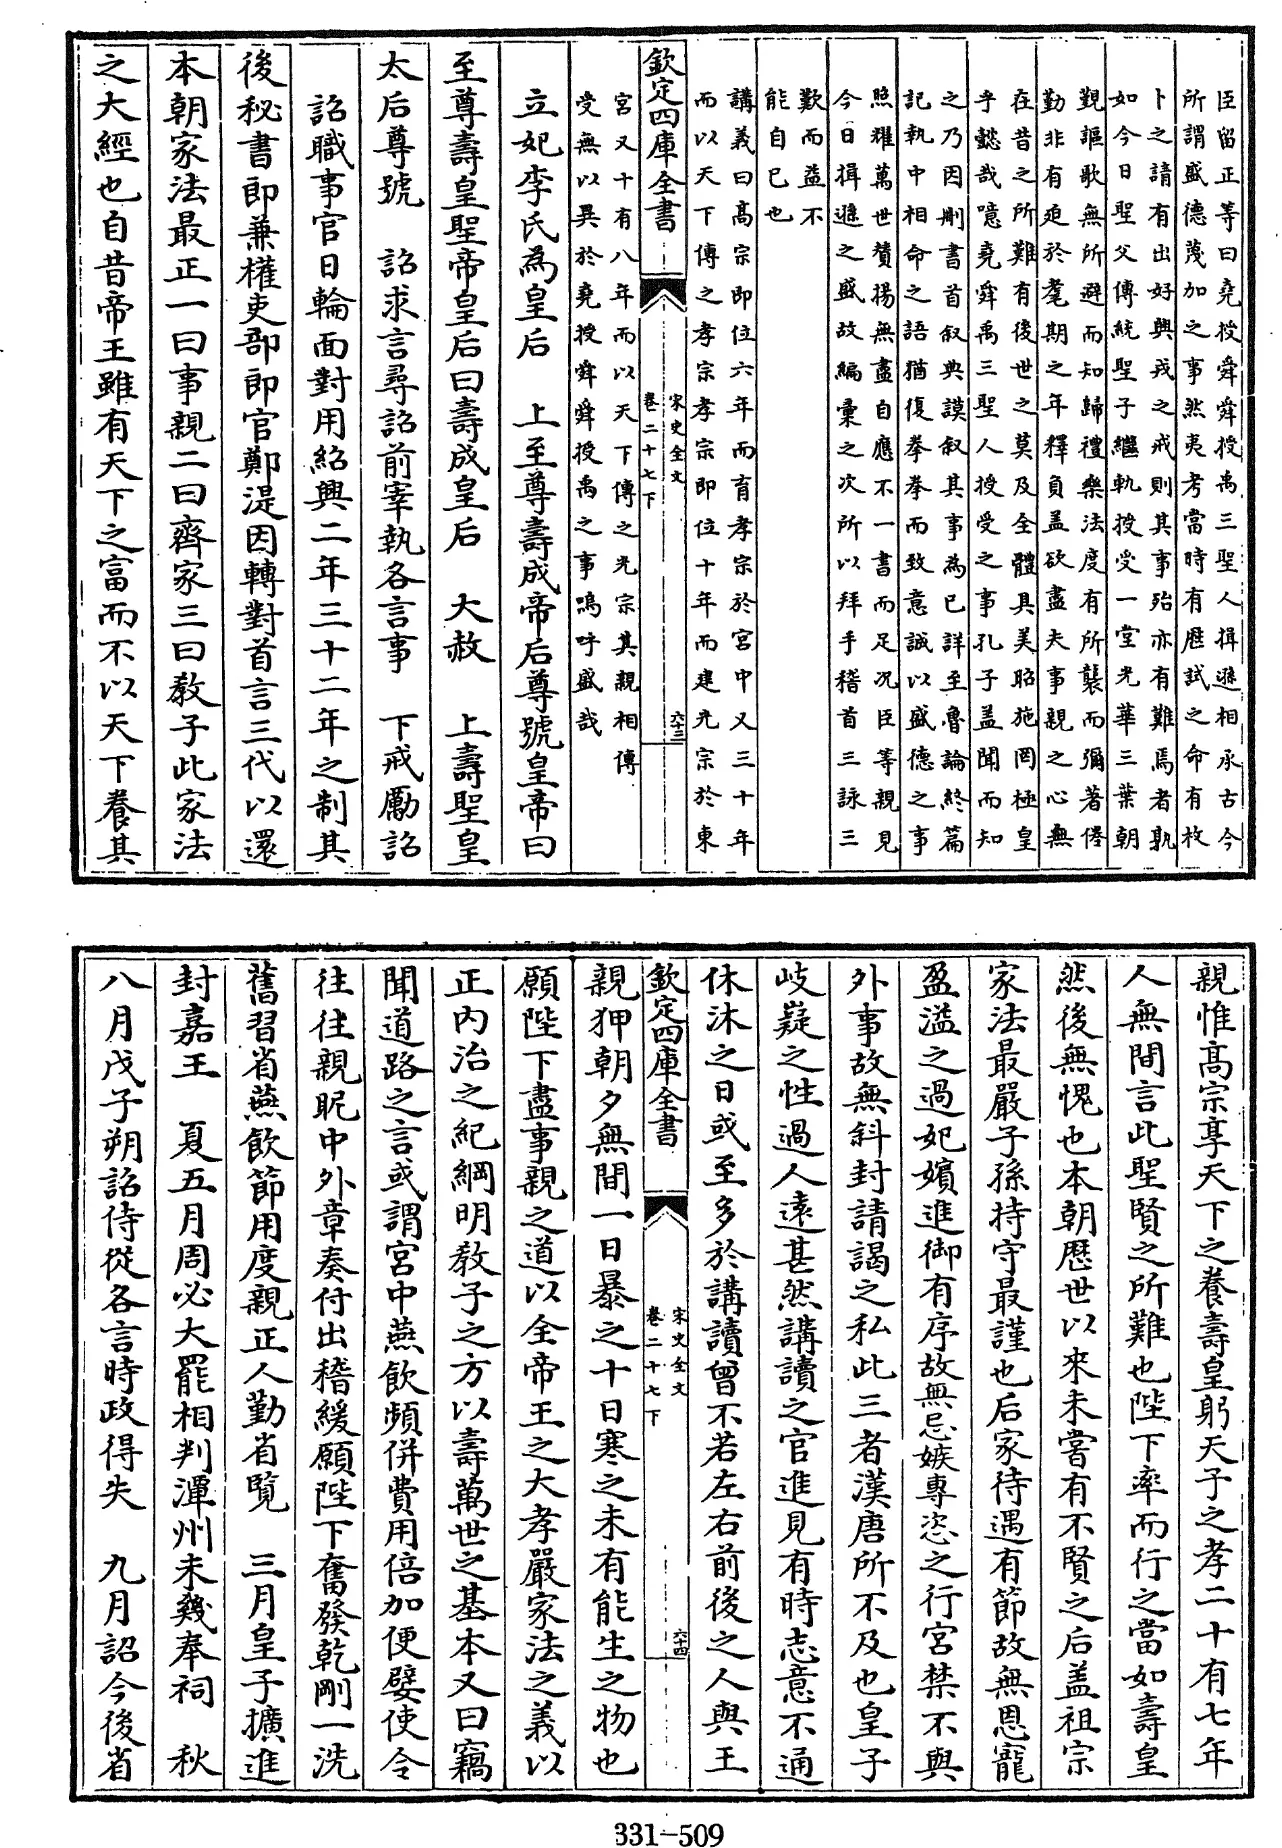 臣留正等曰堯授舜舜授禹三聖人揖遜相承古今
所謂盛德蔑加之事然夷考當時有歷試之命有枚
卜之請有出好興戎之戒則其事殆亦有難焉者孰
如今日聖父傳統聖子繼軌授受一堂光華三葉朝
覲謳歌無所避而知歸禮樂法度有所襲而彌著倦
勤非有迫於耄期之年釋負盖欲盡夫事親之心無
在昔之所難有後世之莫及全體具美昭施罔極皇
乎懿哉噫堯舜禹三聖人授受之事孔子盖聞而知
之乃因刪書首叙典謨叙其事為已詳至魯論終篇
記執中相命之語猶復拳拳而致意誠以盛德之事
照耀萬世賛揚無盡自應不一書而足况臣等親見
今日揖遜之盛故編彙之次所以拜手稽首三詠三
歎而益不
能自已也
講義曰髙宗即位六年而育孝宗於宮中又三十年
而以天下傳之孝宗孝宗即位十年而建光宗於東
欽定四庫全書
宋史全文
卷二十七下
六十三
宮又十有八年而以天下傳之光宗其親相傳
受無以異於堯授舜舜授禹之事嗚呼盛哉
立妃李氏為皇后 上至尊壽成帝后尊號皇帝曰
至尊壽皇聖帝皇后曰壽成皇后 大赦 上壽聖皇
太后尊號 詔求言尋詔前宰執各言事 下戒勵詔
詔職事官日輪面對用紹興二年三十二年之制其
後秘書郎兼權吏部郎官鄭湜因轉對首言三代以還
本朝家法最正一曰事親二曰齊家三曰教子此家法
之大經也自昔帝王雖有天下之富而不以天下養其
親惟髙宗享天下之養壽皇躬天子之孝二十有七年
人無間言此聖賢之所難也陛下率而行之當如壽皇
然後無愧也本朝歷世以來未嘗有不賢之后盖祖宗
家法最嚴子孫持守最謹也后家待遇有節故無恩寵
盈溢之過妃嬪進御有序故無忌嫉專恣之行宮禁不與
外事故無斜封請謁之私此三者漢唐所不及也皇子
岐嶷之性過人遠甚然講讀之官進見有時志意不通
休沐之日或至多於講讀曾不若左右前後之人與王
欽定四庫全書
宋史全文
卷二十七下
六十四
親狎朝夕無間一日暴之十日寒之未有能生之物也
願陛下盡事親之道以全帝王之大孝嚴家法之義以
正内治之紀綱明教子之方以壽萬世之基本又曰竊
聞道路之言或謂宮中燕飲頻併費用倍加便嬖使令
往往親昵中外章奏付出稽緩願陛下奮發乾剛一洗
舊習省燕飲節用度親正人勤省覽 三月皇子擴進
封嘉王 夏五月周必大罷相判潭州未幾奉祠 秋
八月戊子朔詔侍從各言時政得失 九月詔今後省
331-509